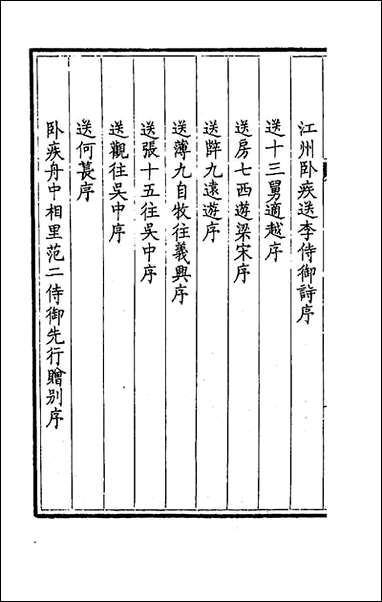 江州卧疾送李侍御詩序
送十三舅適越序
送房七西遊梁宋序
送薜九遠遊序
送薄九自牧往義興序
送張十五往吳中序
送觀往吳中序
送何萇序
卧疾舟中相里范二侍御先行贈别序